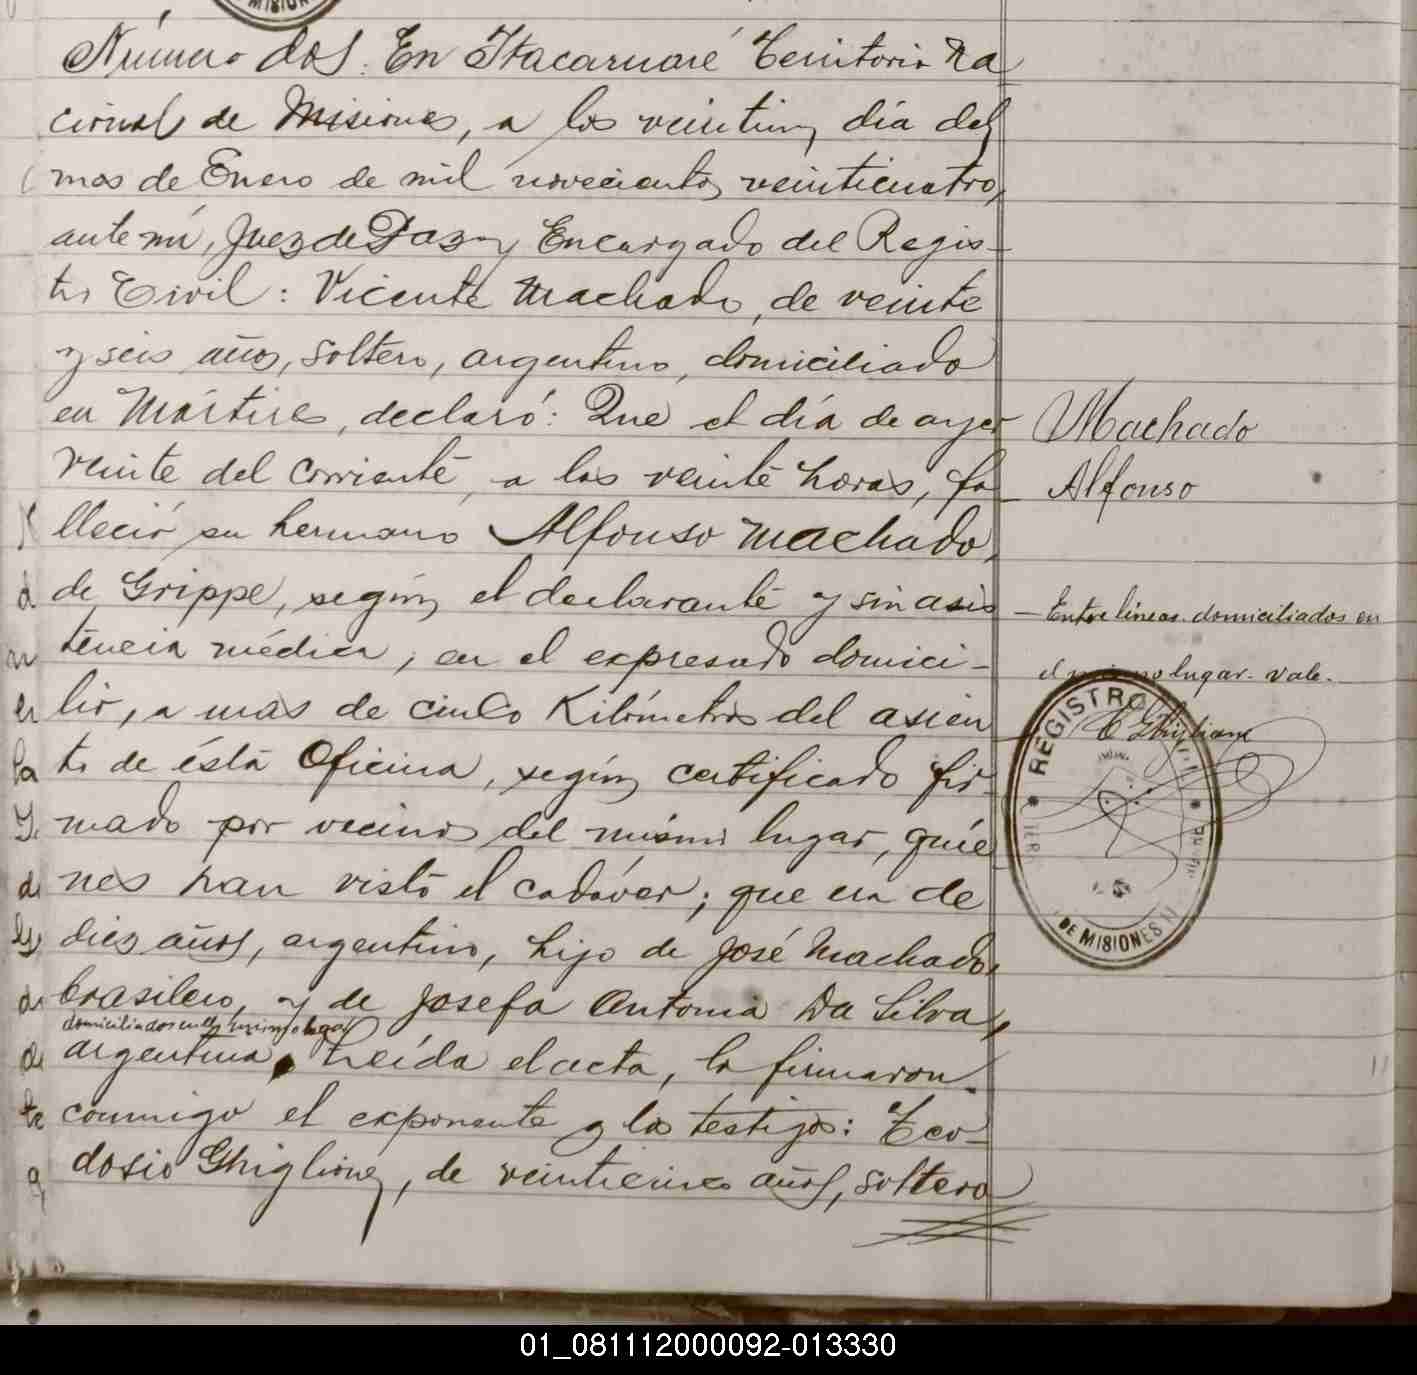 MISION
Número dos. En Itacaruaré Territorio Na
cional de Misiones, a los veintiun día del
mes de Enero de mil novecientos veinticuatro,
ante mí, Juez de Paz y Encargado del Regis-
tro Civil: Vicente Machado, de veinte
y seis años, soltero, argentino, domiciliado
en Mártires, declaró: Que el día de ayer
veinte del corriente, a las veinte horas, fa-
lleció su hermano Alfonso Machado,
de Grippe, según el declarante y sin asis-
tencia médica, en el expresado domici-
lio, a más de cinco Kilómetros del asien
to de ésta Oficina, según certificado fir-
mado por vecinos del mismo lugar, quie
nes han visto el cadáver; que era de
diez años, argentino, hijo de José Machado,
brasilero, y de Josefa Antonia Da Silva,
domiciliados en el mismo lugar
argentina. Leída el acta, la firmaron
conmigo el exponente y los testigos: Teo-
dosio Ghiglione, de veinticinco años, soltero
Machado
Alfonso
Entre líneas. domiciliados en
el mismo lugar. vale.
REGISTRO
DE MISIONES
01_081112000092-013330